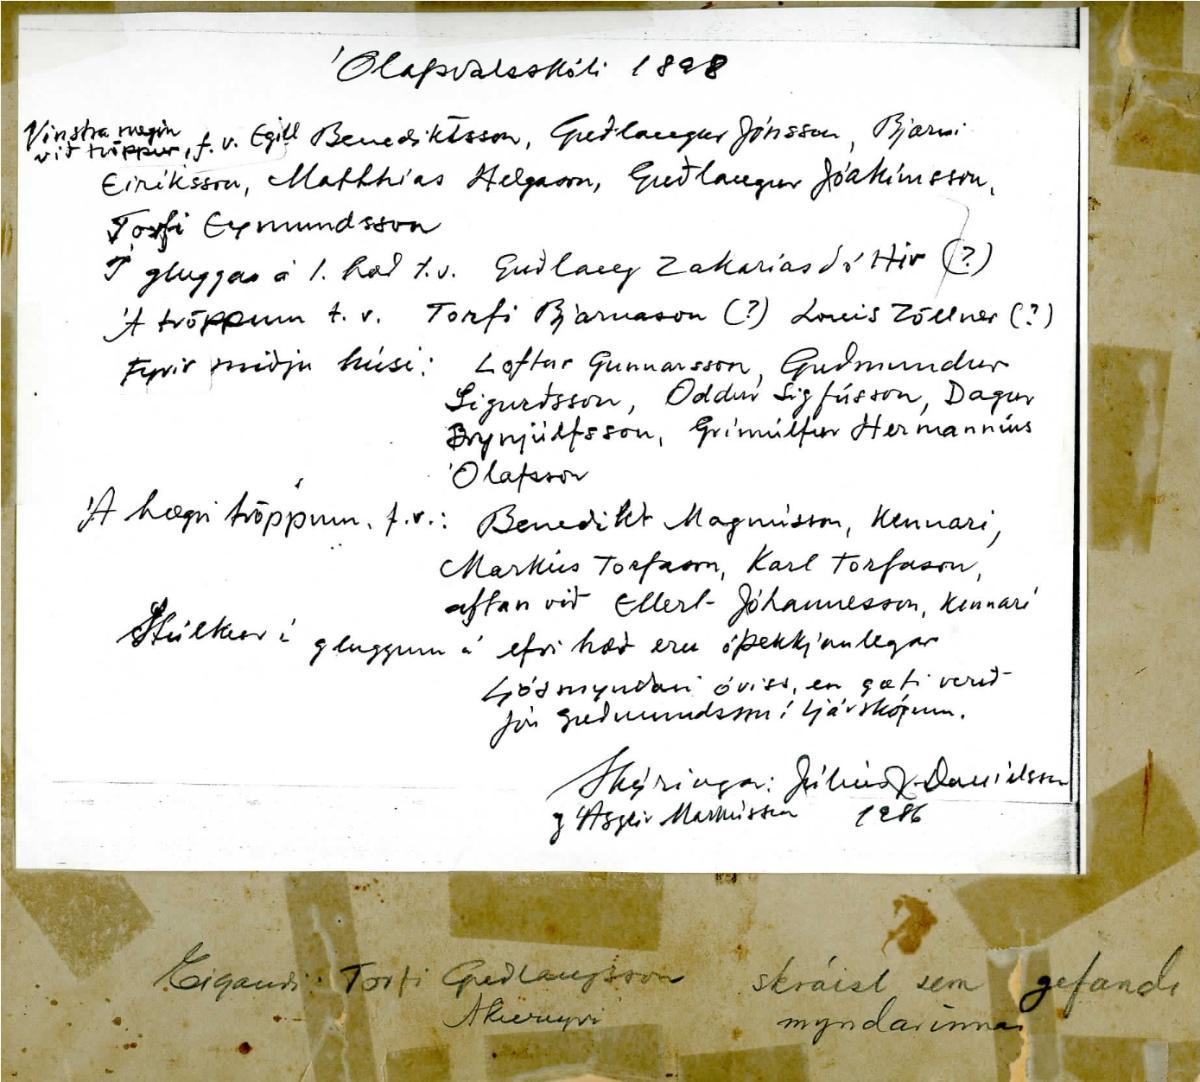 Ólafsdalsskóli 1898
Vinstra megin
við tröppur, f.v. Egill Benediktsson, Guðlaugur Jónsson, Bjarni
Eiríksson, Matthías Helgason, Guðlaugur Jóakimsson,
Torfi Eymundsson
Í glugga á 1. hæð t.v. Guðlaug Zakaríasdóttir (?)
Á tröppum t.v. Torfi Bjarnason (?) Louis Zöllner (?)
Fyrir miðju húsi: Loftur Gunnarsson, Guðmundur
Sigurðsson, Oddur Sigfússon, Dagur
Brynjúlfsson, Grímúlfur Hermanníus
Ólafsson
Á hægri tröppum, f.v.: Benedikt Magnússon, kennari,
Markús Torfason, Karl Torfason,
aftan við Ellert Jóhannesson, kennari
Stúlkur í gluggum á efri hæð eru óþekkjanlegar
Ljósmyndari óviss, en gæti verið
Jón Guðmundsson í Ljárskógum.
Skýringar: Júlíus J. Daníelsson
g Ásgeir Markússon 1986
Eigandi: Torfi Guðlaugsson skráist sem gefandi
Akureyri myndarinnar